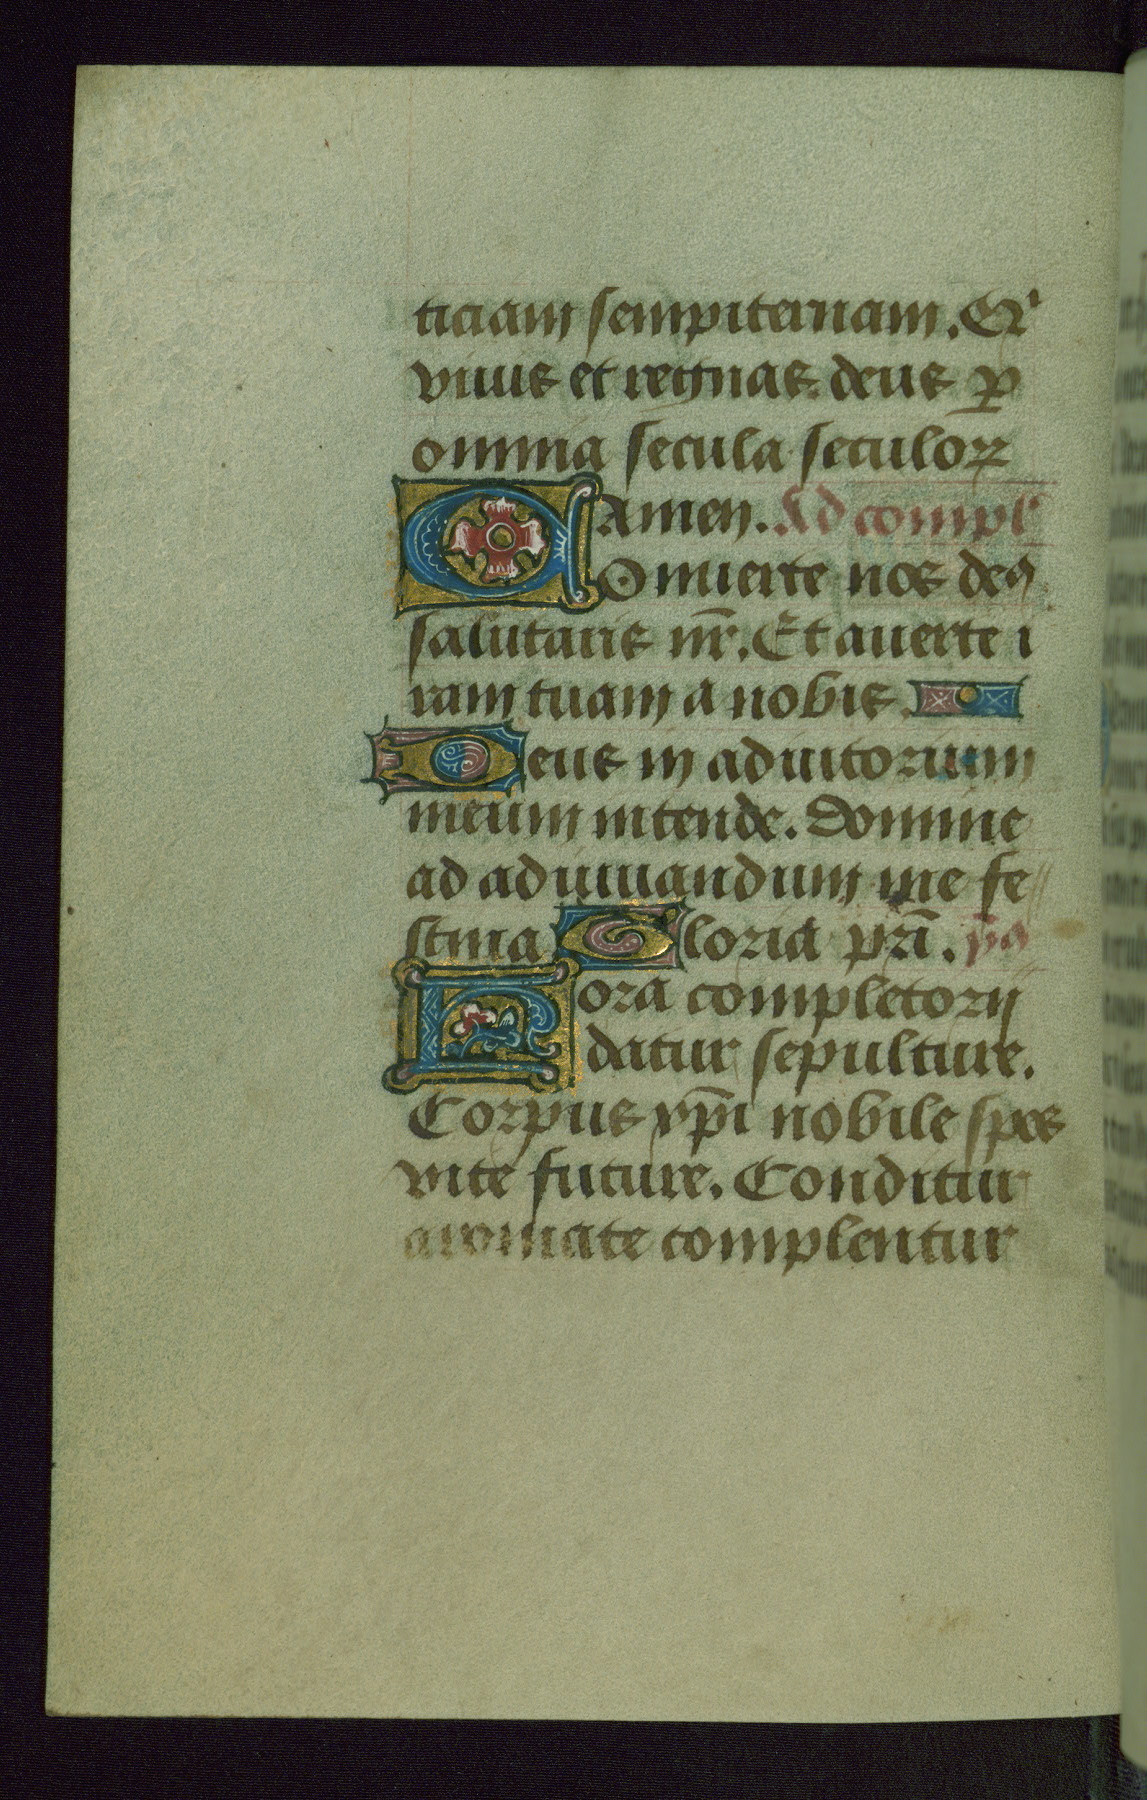 ticiam sempiternam. Qꝛ̍
viuis et regnas deus ꝑ
omnia secula seculoꝝ
amen. Ad compl̍
Conuerte nos deꝰ
salutaris nr̄. Et auerte i
ram tuam a nobis.
Deus in adiutorium
meum intende. Domine
ad adiuuandum me fe
stina Gloria pr̄i. yꝰ
Hora completorij
datur sepulture.
Corpus xp̄i nobile spes
vite future. Conditur
aromate complentur